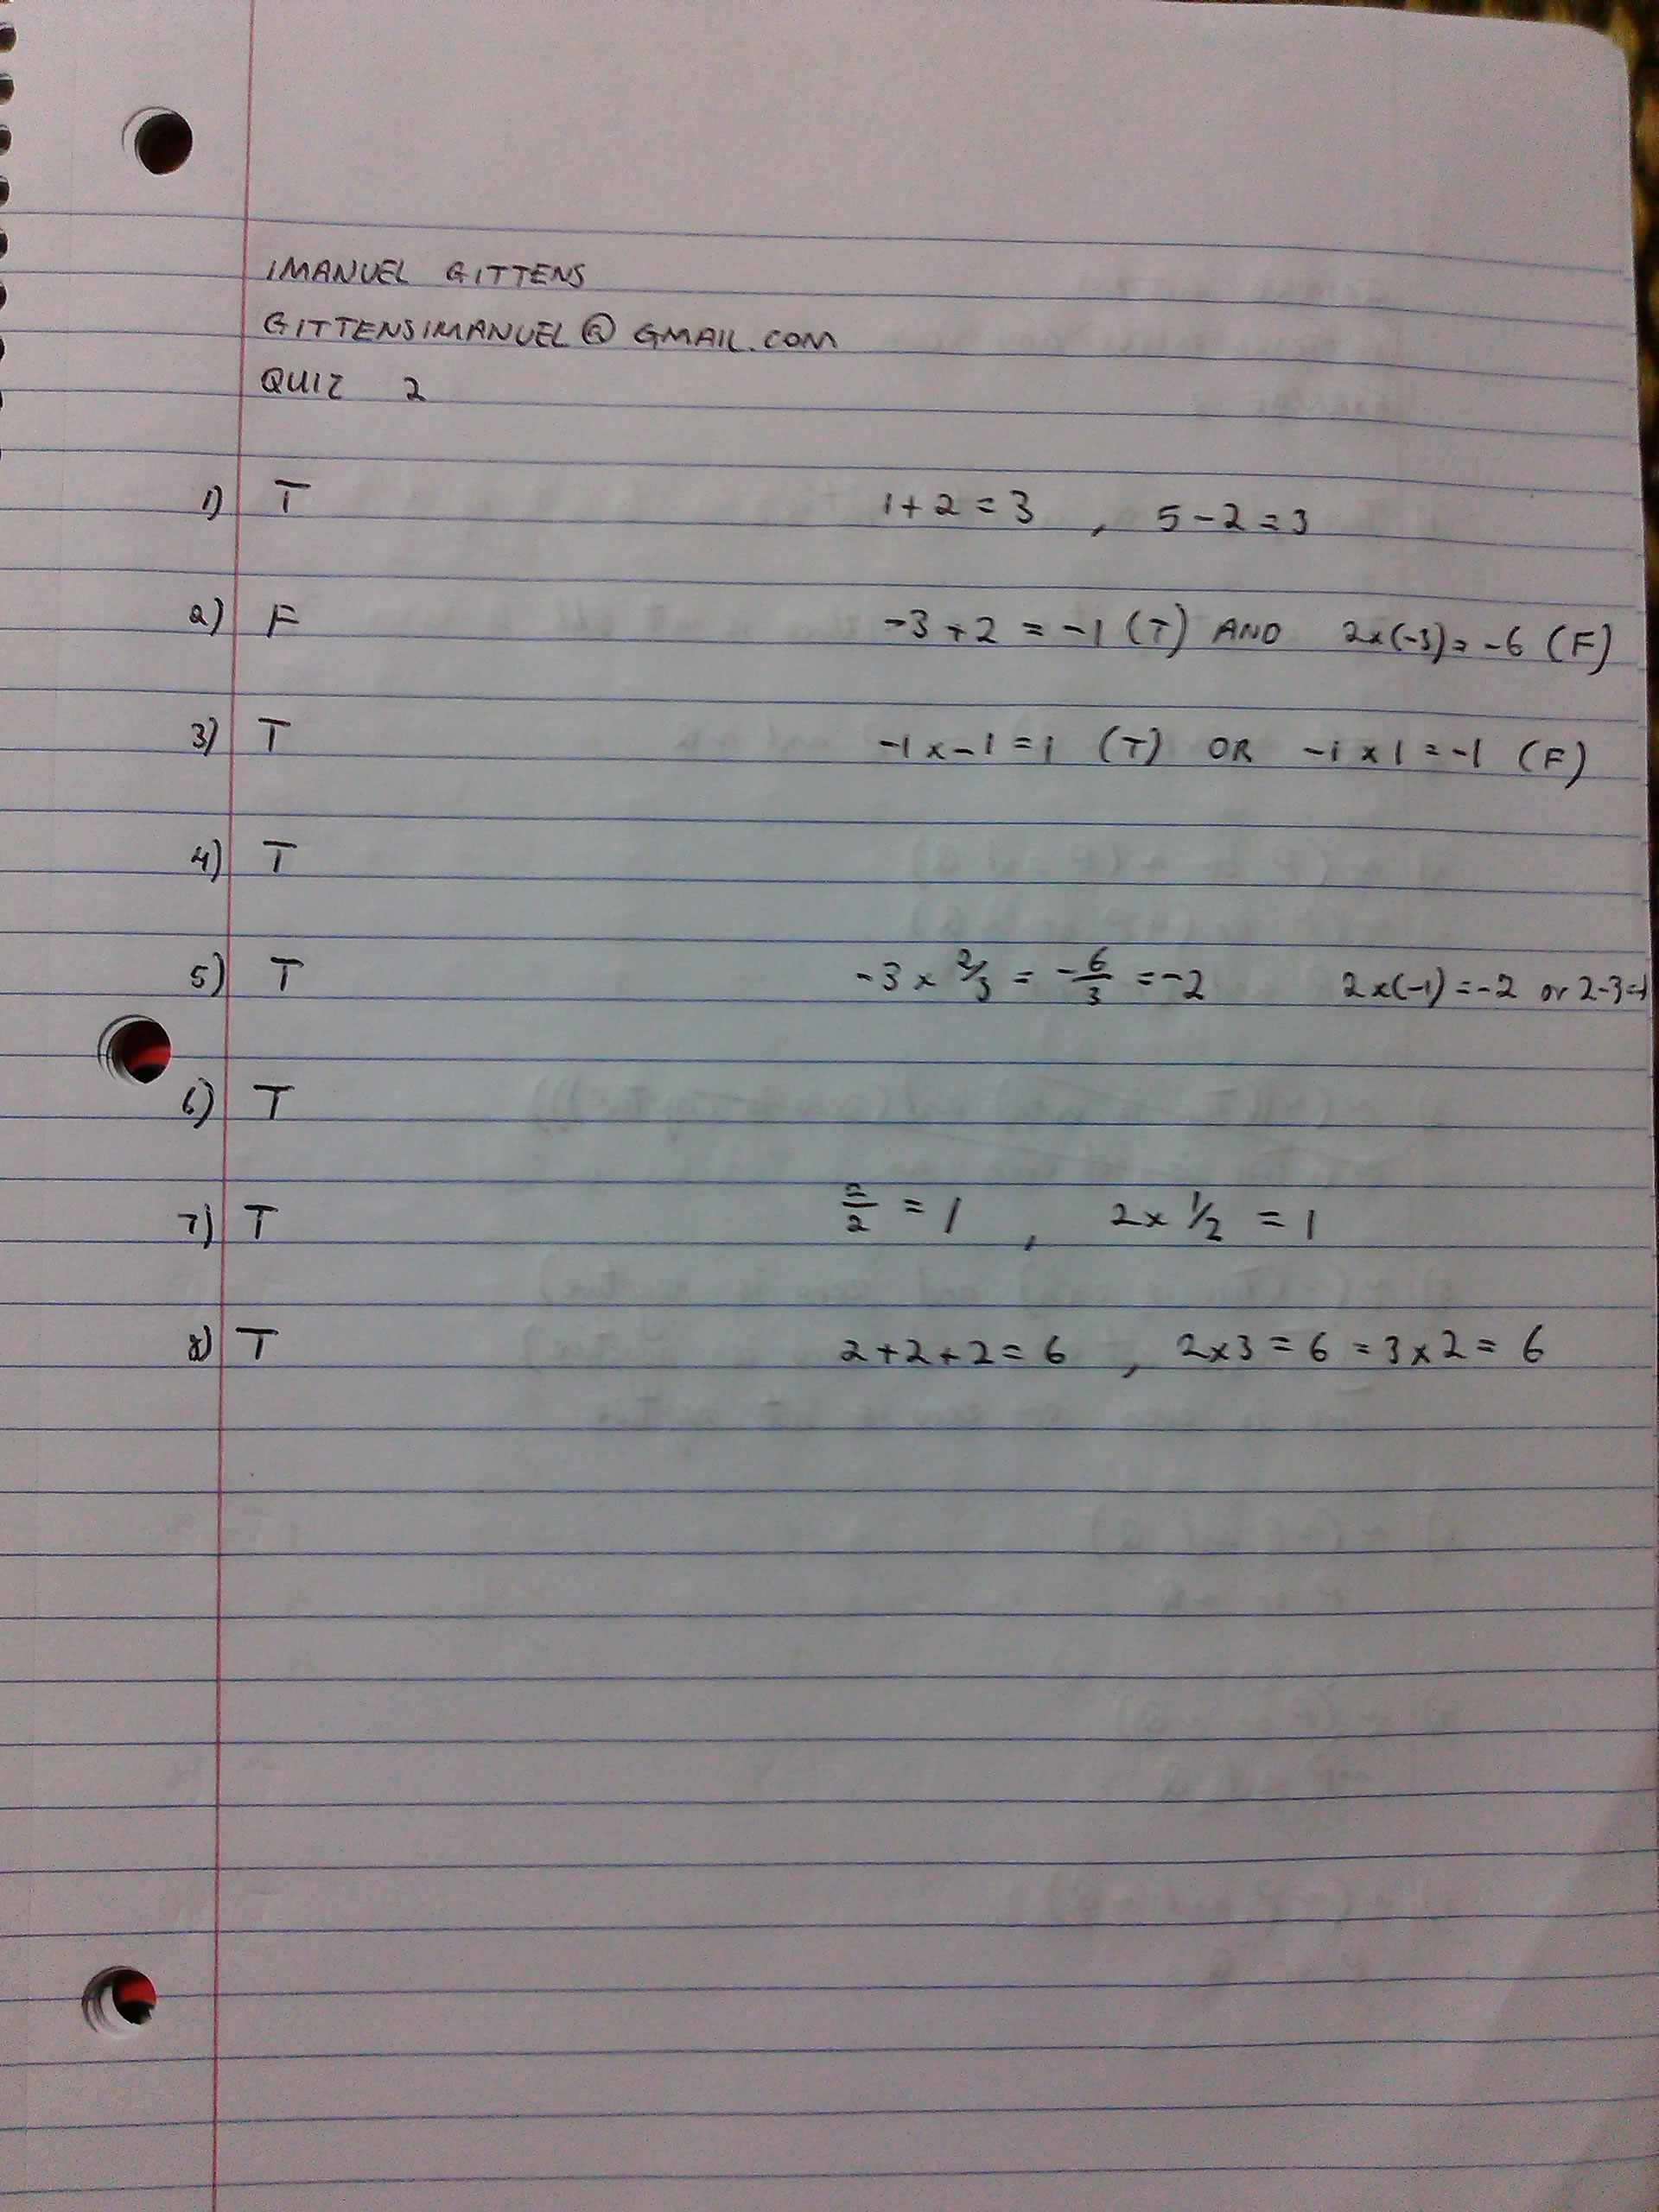 IMANUEL GITTENS
GITTENSIMANUEL@GMAIL.COM
QUIZ 2
1) T 1+2=3 , 5-2=3
2) F -3+2=-1 (T) AND 2x(-3)=-6 (F)
3) T -1x-1=1 (T) OR -1x1=-1 (F)
4) T
5) T -3 x 2/3 = -6/3 = -2 2x(-1)=-2 or 2-3=-1
6) T
7) T 2/2 = 1 , 2x 1/2 = 1
8) T 2+2+2=6 , 2x3=6=3x2=6